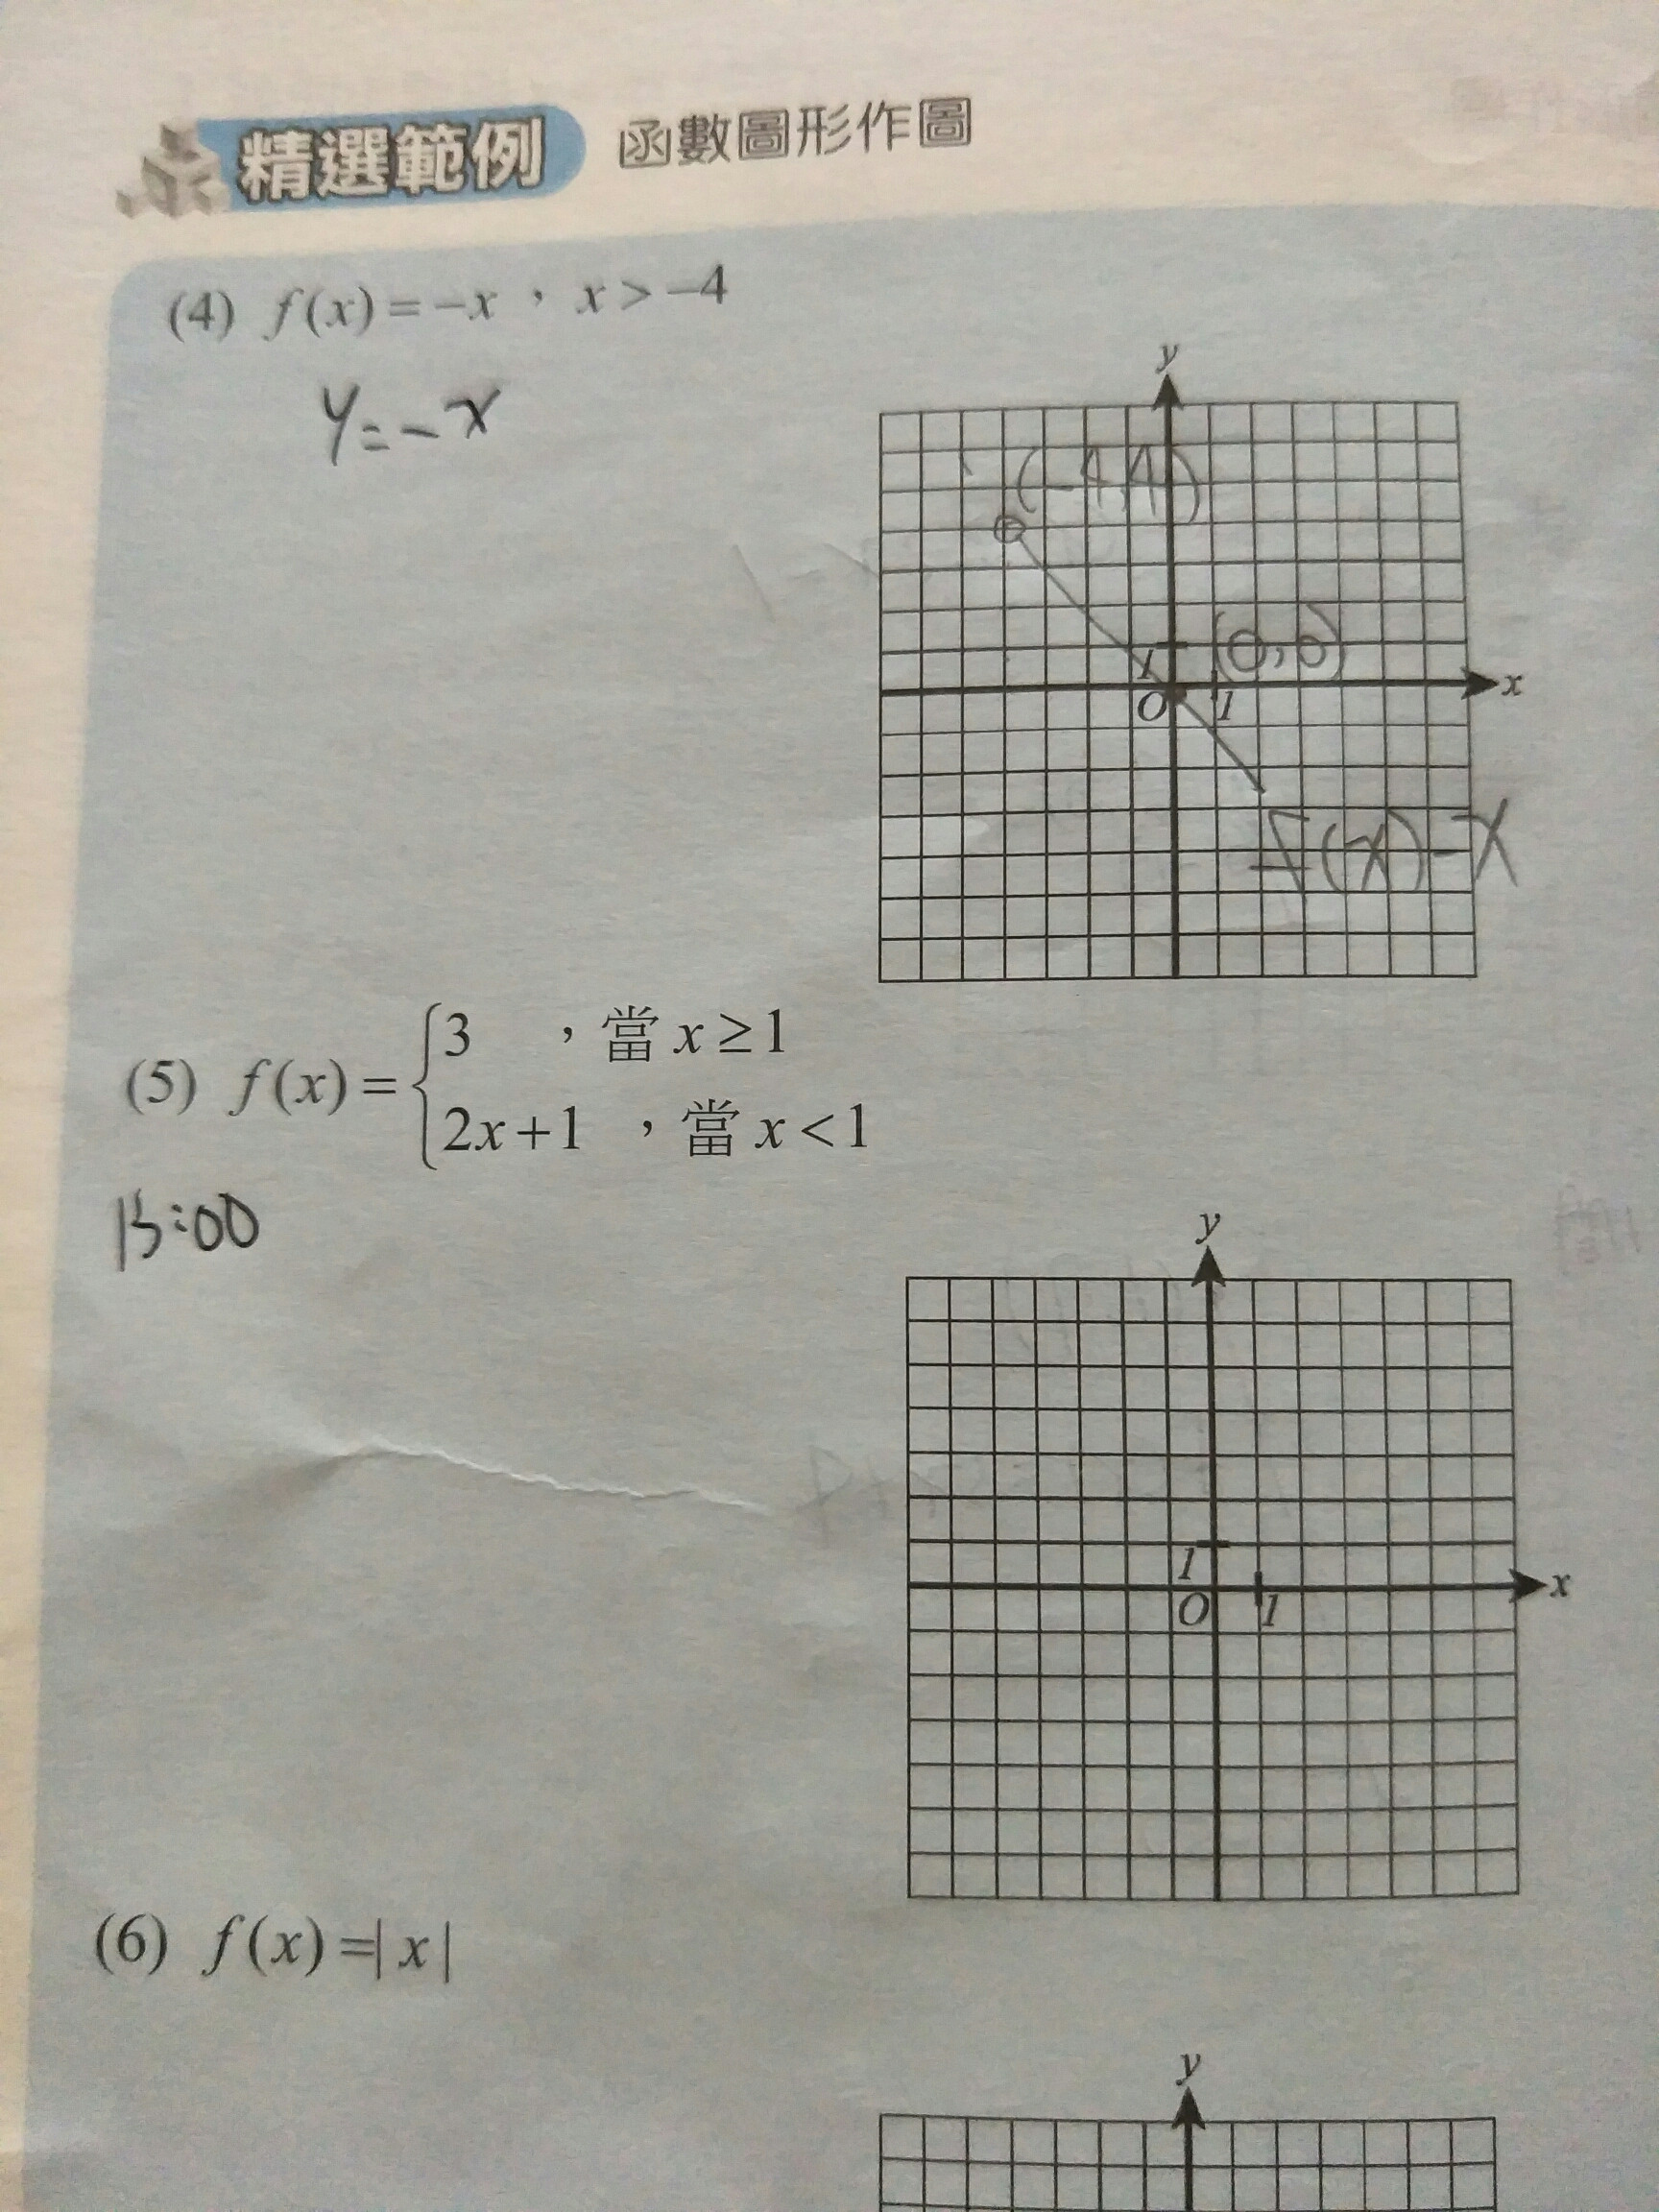 精選範例 函數圖形作圖
(4) f(x)=-x , x>-4
y=-x
y
(-4,4)
(0,0)
1
O 1 x
f(x)-x
(5) f(x)={3 ,當 x≥1
2x+1 ,當 x<1
:00
y
1
O 1 x
(6) f(x)=|x|
y